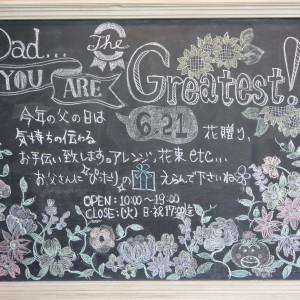 Dad... The
YOU ARE Greatest!
今年の父の日は 6.21 花贈り、
気持ちの伝わる
お手伝い致します。アレンジ、花束 etc...
お父さんにぴったりの えらんで下さいね
OPEN:10:00~19:00
CLOSE:(火) 日・祝17:00迄